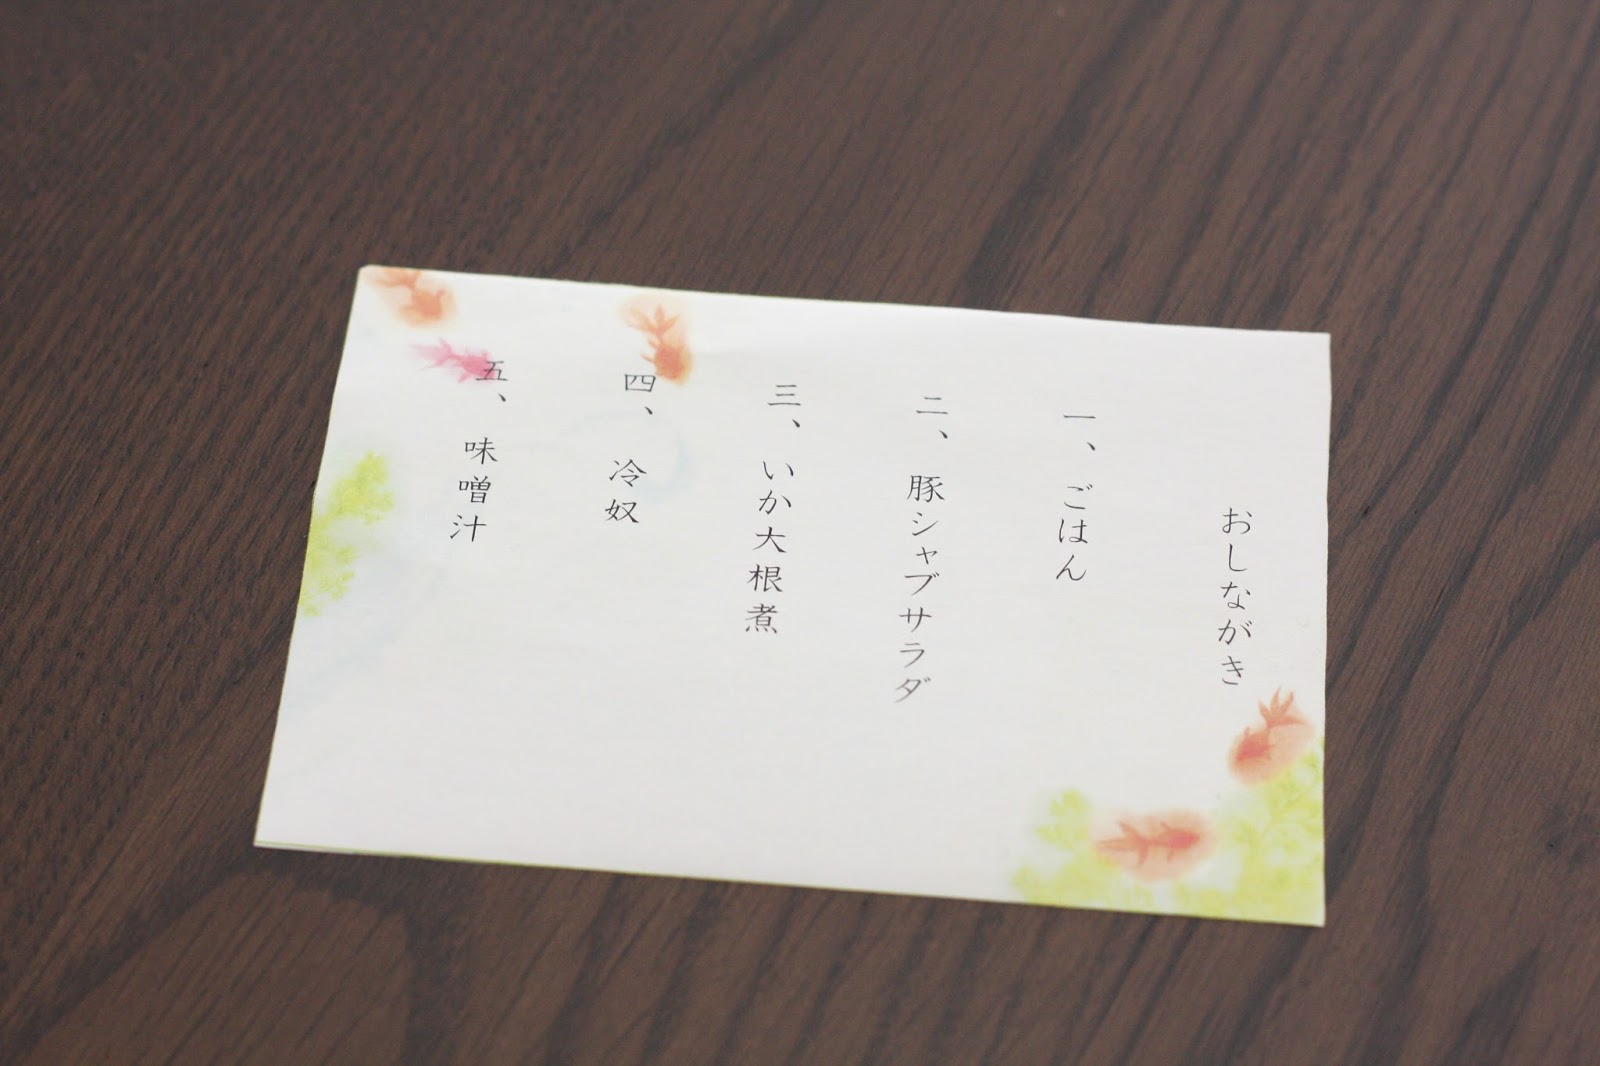 おしながき
一、ごはん
二、豚シャブサラダ
三、いか大根煮
四、冷奴
五、味噌汁